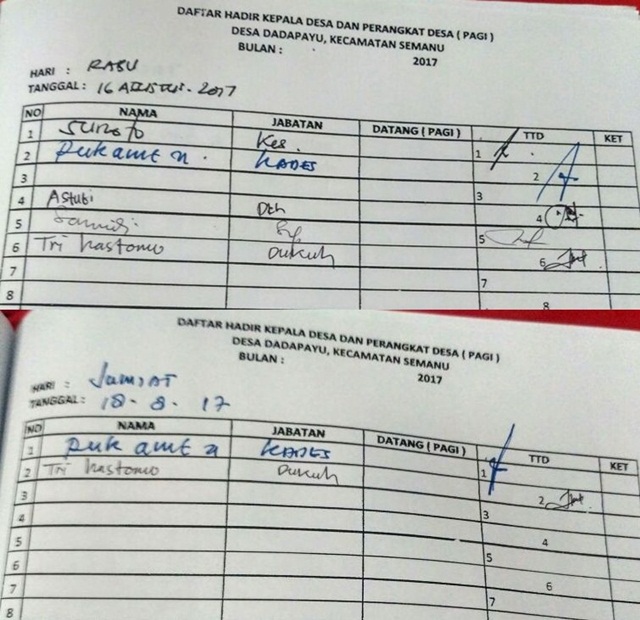 DAFTAR HADIR KEPALA DESA DAN PERANGKAT DESA ( PAGI )
DESA DADAPAYU, KECAMATAN SEMANU
BULAN : 2017
HARI : RABU
TANGGAL : 16 AGUSTUS - 2017
NO NAMA JABATAN DATANG ( PAGI ) TTD KET
1 SUROTO Kes. 1
2 Rukamto KADES 2
3 3
4 Astuti Dkh 4
5 5
6 Tri hastomo Dukuh 6
7 7
8 8
DAFTAR HADIR KEPALA DESA DAN PERANGKAT DESA ( PAGI )
DESA DADAPAYU, KECAMATAN SEMANU
BULAN : 2017
HARI : JUM'AT
TANGGAL : 18 - 8 - 17
NO NAMA JABATAN DATANG ( PAGI ) TTD KET
1 Rukamto KADES 1
2 Tri hastomo Dukuh 2
3 3
4 4
5 5
6 6
7 7
8